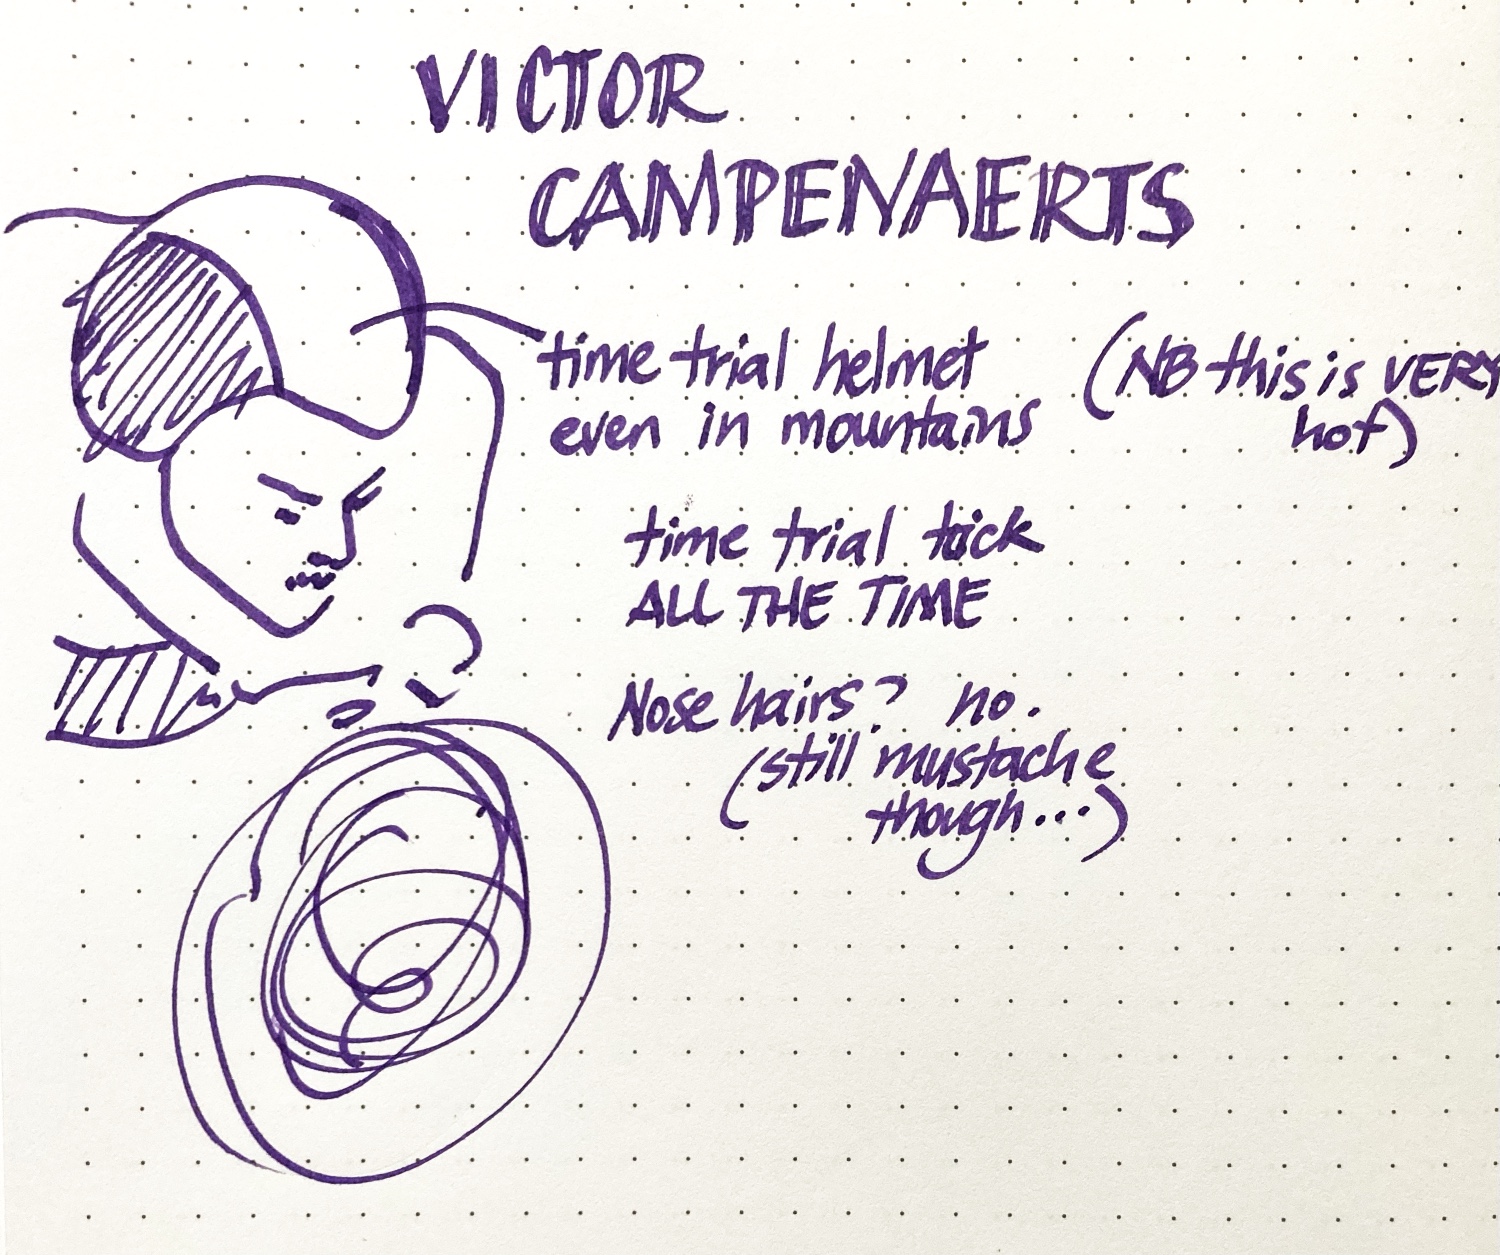 VICTOR
CAMPENAERTS
time trial helmet (NB this is VERY
even in mountains hot)
time trial tuck
ALL THE TIME
Nose hairs? no.
(still mustache
though...)